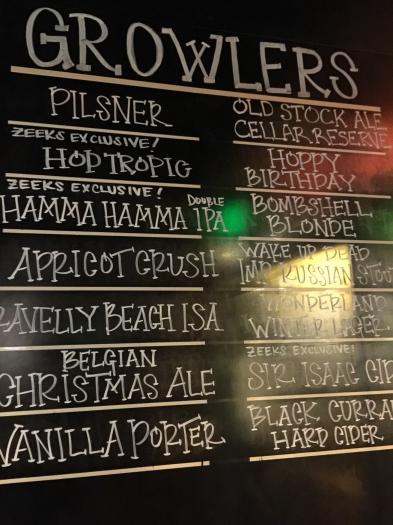 GROWLERS
PILSNER
ZEEKS EXCLUSIVE!
HOP TROPIG
ZEEKS EXCLUSIVE!
HAMMA HAMMA DOUBLE IPA
APRICOT CRUSH
RAVELLY BEACH ISA
BELGIAN
CHRISTMAS ALE
VANILLA PORTER
OLD STOCK ALE
CELLAR RESERVE
HOPPY
BIRTHDAY
BOMBSHELL
BLONDE
WAKE UP DEAD
IMP RUSSIAN STOU
WONDERLAND
WINTER LAGER
ZEEKS EXCLUSIVE!
SIR ISAAC CID
BLACK CURRA
HARD CIDER